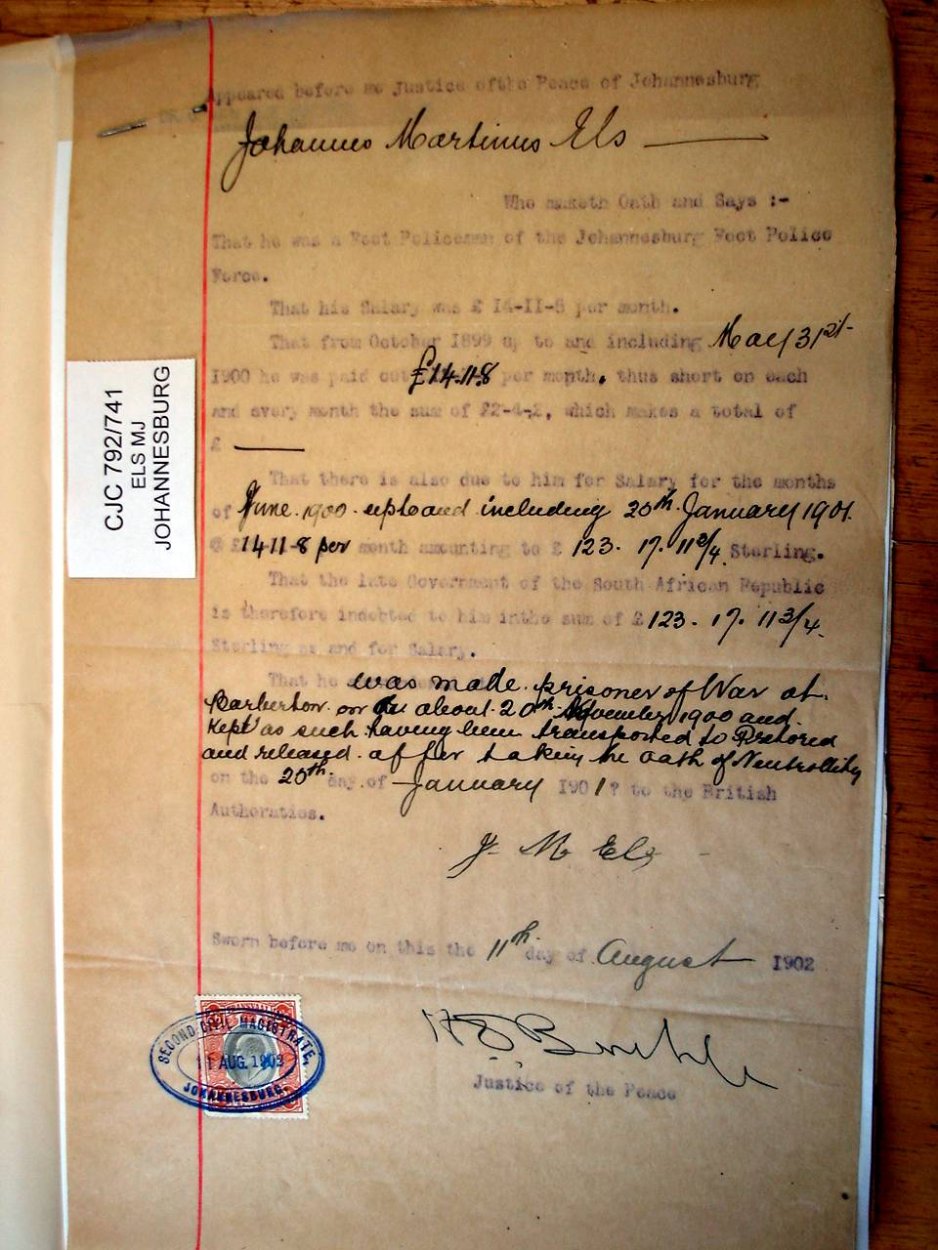 Appeared before me Justice ofthe Peace of Johannesburg
Johannes Martinus Els
Who maketh Oath and Says :-
That he was a Foot Policeman of the Johannesburg Foot Police
Force.
That his Salary was £ 14-11-8 per month.
That from October 1899 up to and including May 31st
1900 he was paid out £14.11.8 per month, thus short on each
and every month the sum of £2-4-2, which makes a total of
£
That there is also due to him for Salary for the months
of June 1900 upto and including 20th January 1901.
@ £14 11-8 per month amounting to £ 123. 17. 11 3/4 Sterling.
That the late Government of the South African Republic
is therefore indebted to him inthe sum of £ 123. 17. 11 3/4.
Sterling as and for Salary.
That he was made prisoner of War at
Barberton on about 20th November 1900 and
kept as such having been transported to Pretoria
and released after taking the oath of Neutrallity
on the 20th day of January 1901? to the British
Authoraties.
J M Els
Sworn before me on this the 11th day of August 1902
Justice of the Peace
CJC 792/741
ELS MJ
JOHANNESBURG
SECOND CIVIL MAGISTRATE,
11 AUG. 1902
JOHANNESBURG.